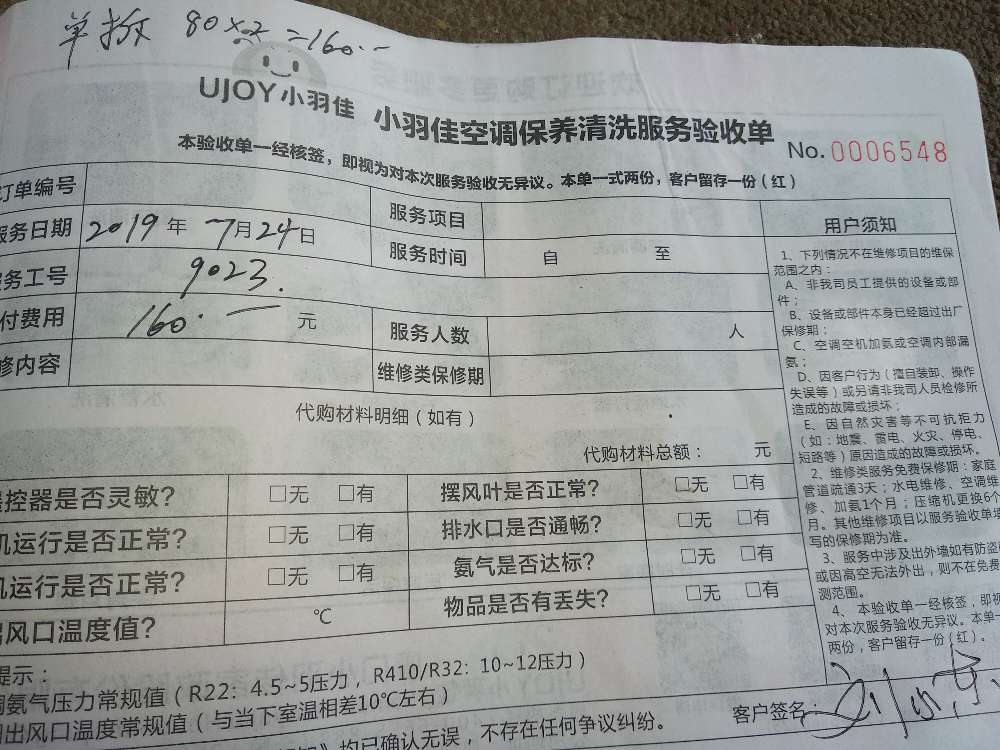 单拆 80×2=160.—
UJOY小羽佳 小羽佳空调保养清洗服务验收单
No.0006548
本验收单一经核签，即视为对本次服务验收无异议。本单一式两份，客户留存一份（红）
订单编号 服务项目
服务日期 2019年 7月24日 服务时间 自 至
务工号 9023.
付费用 160.— 元 服务人数 人
修内容 维修类保修期
代购材料明细（如有）
代购材料总额： 元
控器是否灵敏？ □无 □有 摆风叶是否正常？ □无 □有
机运行是否正常？ □无 □有 排水口是否通畅？ □无 □有
机运行是否正常？ □无 □有 氨气是否达标？ □无 □有
风口温度值？ ℃ 物品是否有丢失？ □无 □有
提示：
氨气压力常规值（R22：4.5~5压力，R410/R32：10~12压力）
出风口温度常规值（与当下室温相差10℃左右）
均已确认无误，不存在任何争议纠纷。
客户签名：
用户须知
1、下列情况不在维修项目的维保
范围之内：
A、非我司员工提供的设备或部
件；
B、设备或部件本身已经超过出厂
保修期；
C、空调空机加氨或空调内部漏
氨；
D、因客户行为（擅自装卸、操作
失误等）或另请非我司人员检修所
造成的故障或损坏；
E、因自然灾害等不可抗拒力
（如：地震、雷电、火灾、停电、
短路等）原因造成的故障或损坏。
2、维修类服务免费保修期：家庭
管道疏通3天；水电维修、空调维
修、加氨1个月；压缩机更换6个
月。其他维修项目以服务验收单填
写的保修期为准。
3、服务中涉及出外墙如有防盗
或因高空无法外出，则不在免费
测范围。
4、本验收单一经核签，即视
对本次服务验收无异议。本单一
两份，客户留存一份（红）。